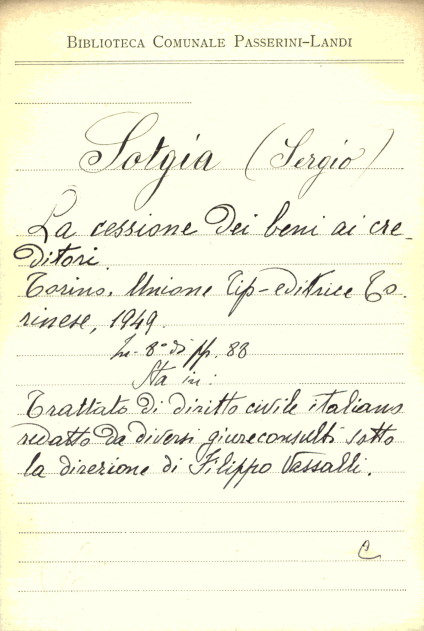 BIBLIOTECA COMUNALE PASSERINI-LANDI
Sotgia (Sergio)
La cessione dei beni ai cre-
ditori.
Torino. Unione Tip-editrice To-
rinese, 1949.
In-8° di pp. 88
Sta in:
Trattato di diritto civile italiano
redatto da diversi giureconsulti sotto
la direzione di Filippo Vassalli.
C